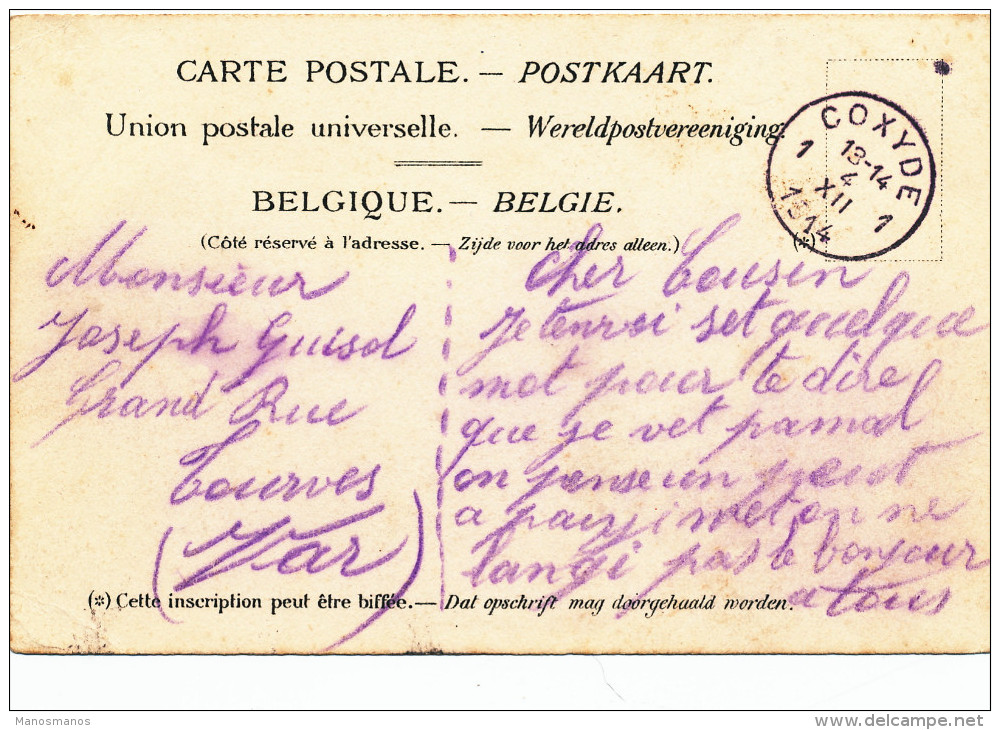 CARTE POSTALE. — POSTKAART.
Union postale universelle. — Wereldpostvereeniging.
BELGIQUE. — BELGIE.
(Côté réservé à l'adresse. — Zijde voor het adres alleen.)
(*)
COXYDE
13-14
4
XII
1914
1 1
Monsieur
Joseph Guisol
Grand Rue
Tourves
(Var)
Cher Cousin
Je tenvoi set quelque
mot pour te dire
que je vet pamal
on pense un
a
langi pas le bonjour
a tous
(*) Cette inscription peut être biffée. — Dat opschrift mag doorgehaald worden.
Manosmanos
delcampe.net